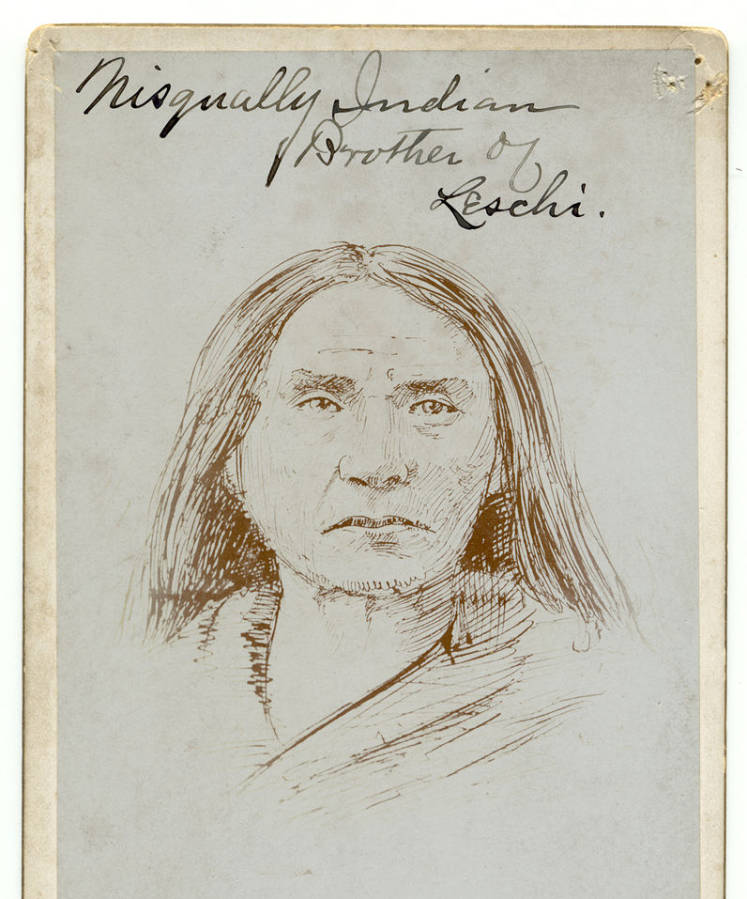 Nisqually Indian
Brother of
Leschi.